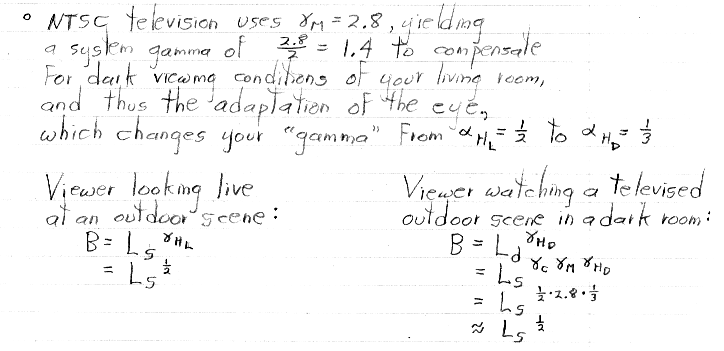 ° NTSC television uses γM = 2.8, yielding
a system gamma of 2.8/2 = 1.4 to compensate
For dark viewing conditions of your living room,
and thus the adaptation of the eye,
which changes your "gamma" From αHL = 1/2 to αHD = 1/3
Viewer looking live
at an outdoor scene:
B = Ls^γHL
= Ls^1/2
Viewer watching a televised
outdoor scene in a dark room:
B = Ld^γHD
= Ls^γC γM γHD
= Ls^1/2·2.8·1/3
≈ Ls^1/2